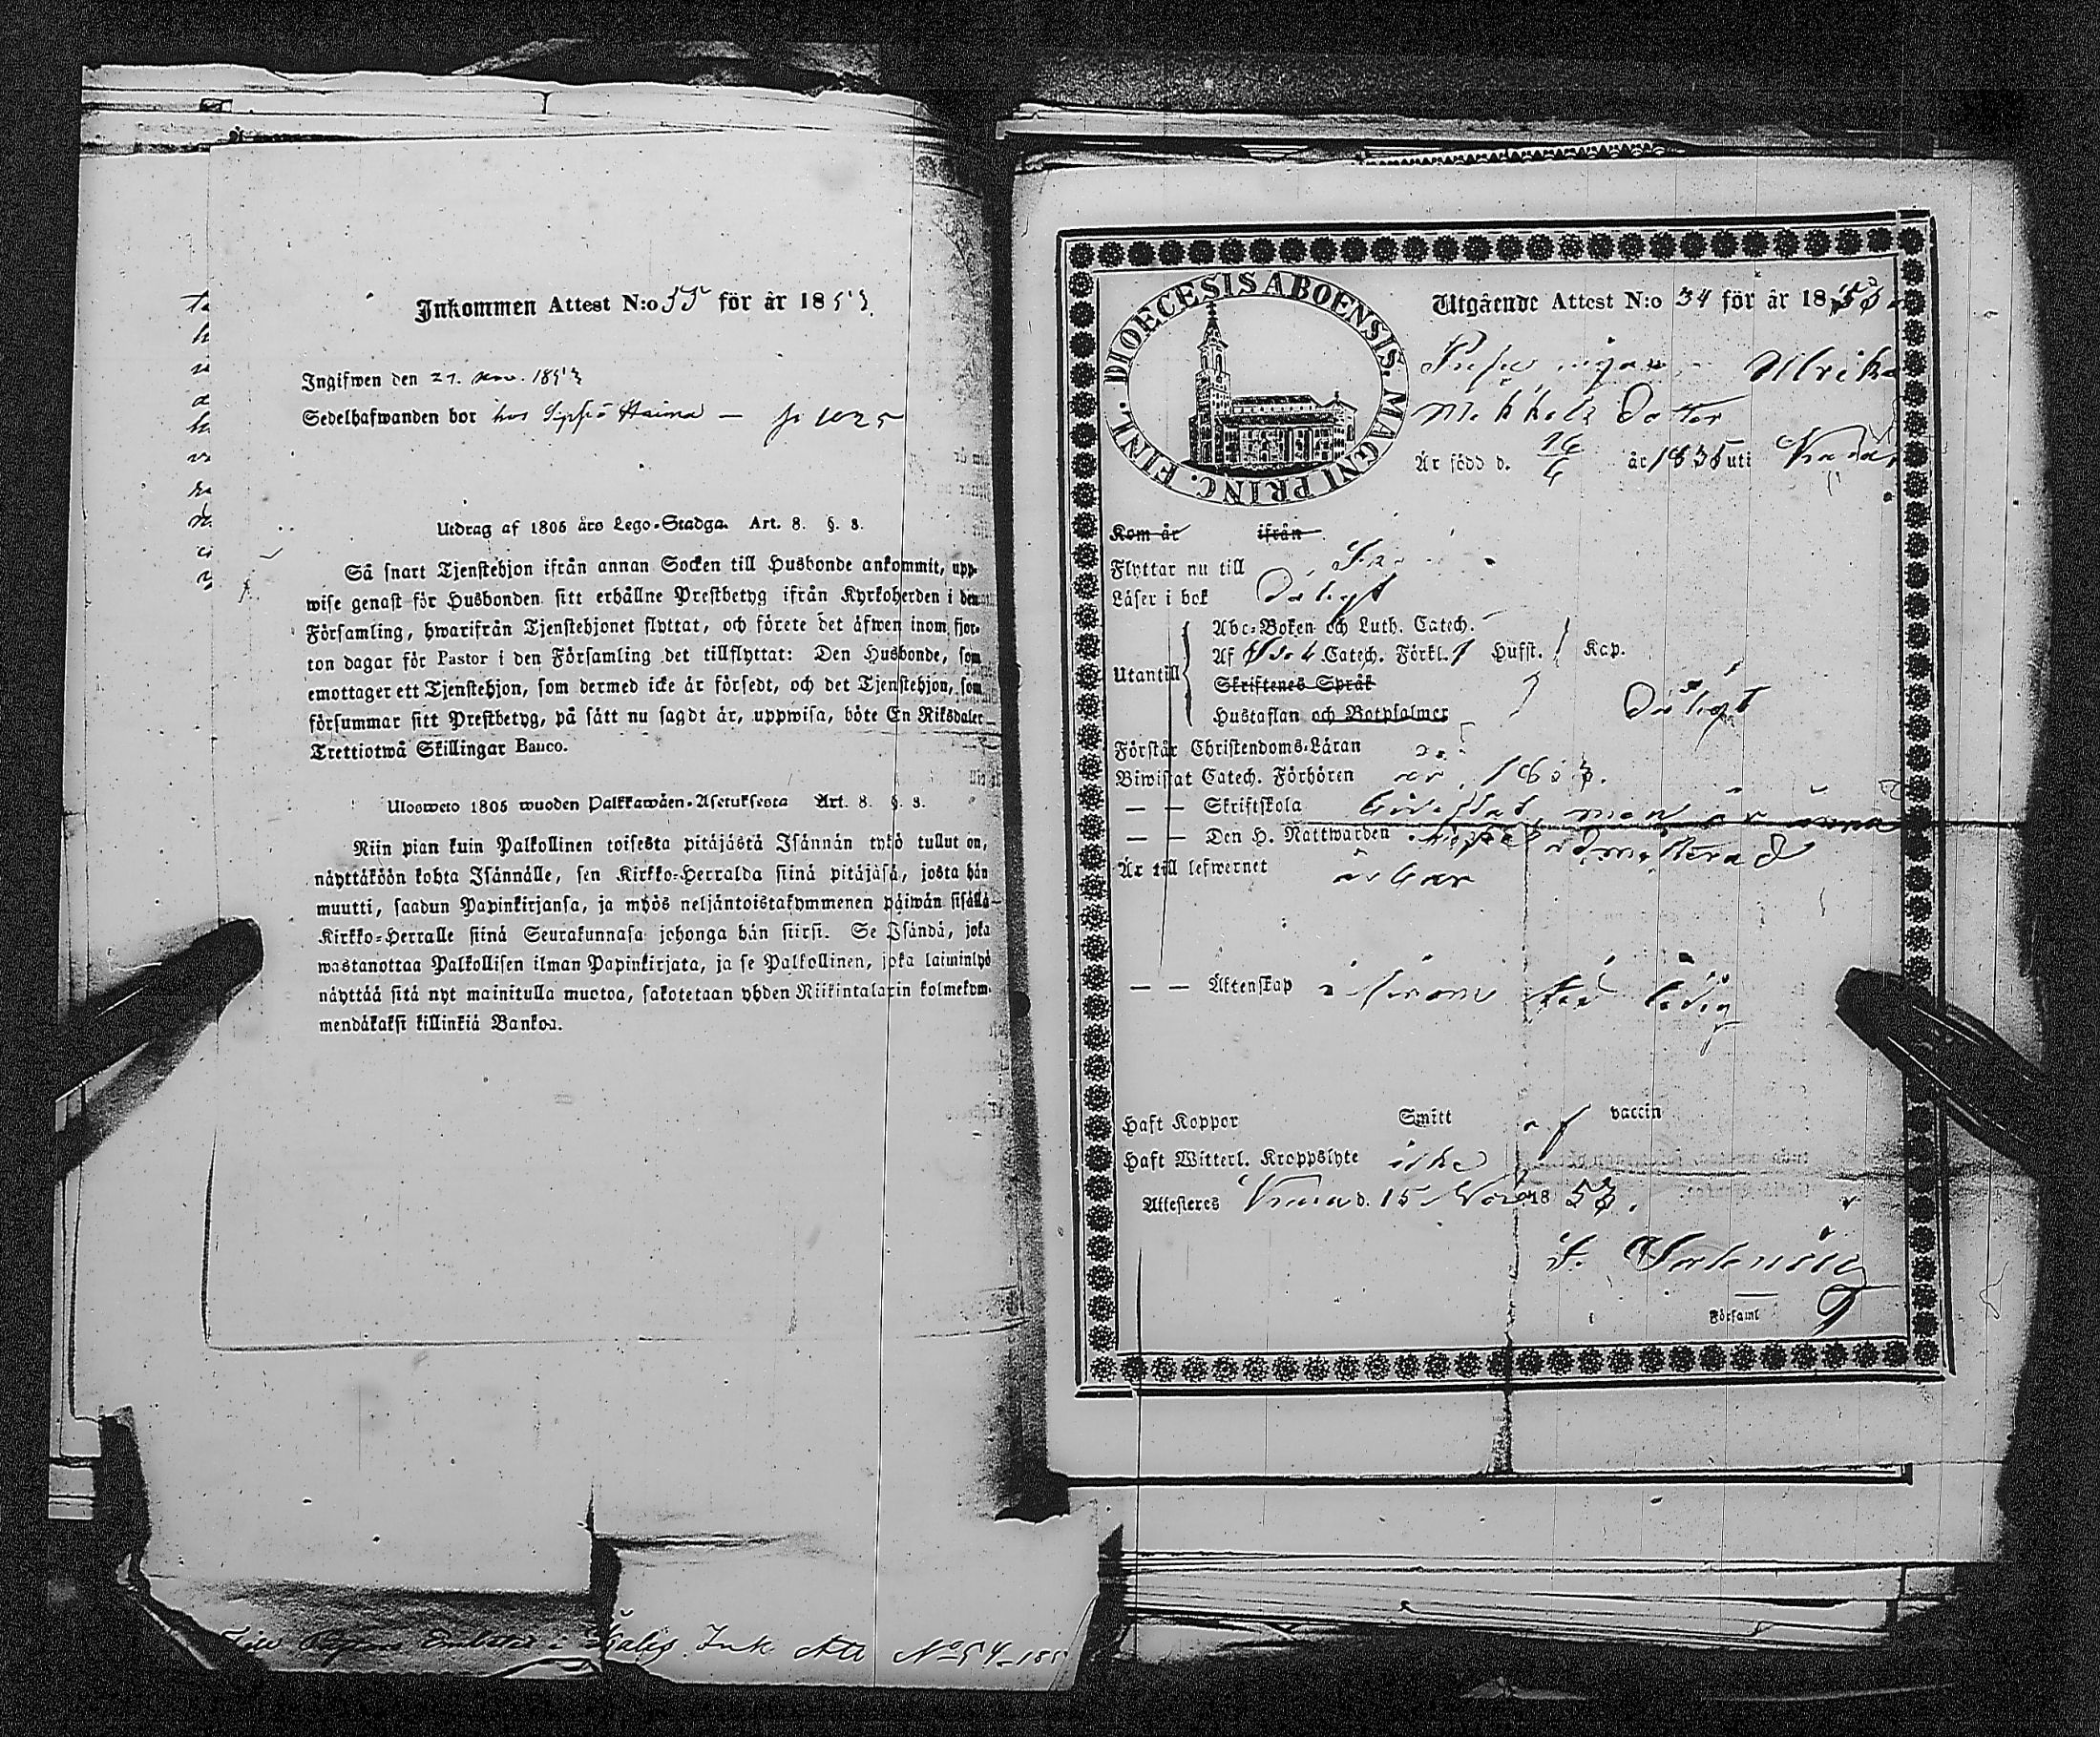 Inkommen Attest N:o 55 för år 1853.
Ingifwen den 27. nov. 1853
Sedelhafwanden bor hos
Utdrag af 1805 års Lego-Stadga. Art. 8. §. 8.
Så snart Tjenstehjon ifrån annan Socken till Husbonde ankommit, upp-
wise genast för Husbonden sitt erhållne Prestbetyg ifrån Kyrkoherden i den
Församling, hwarifrån Tjenstehjonet flyttat, och förete det äfwen inom fjor-
ton dagar för Pastor i den Församling det tillflyttat: Den Husbonde, som
emottager ett Tjenstehjon, som dermed icke är försedt, och det Tjenstehjon, som
försummar sitt Prestbetyg, på sätt nu sagdt är, uppwisa, böte En Riksdaler
Trettiotwå Skillingar Banco.
Ulosweto 1805 wuoden Palkkawäen-Asetuksesta Art. 8. §. 8.
Niin pian kuin Palkollinen toisesta pitäjästä Isännän tykö tullut on,
näyttäköön kohta Isännälle, sen Kirkko-Herralda siinä pitäjäsä, josta hän
muutti, saadun Papinkirjansa, ja myös neljäntoistakymmenen päiwän sisällä
Kirkko-Herralle siinä Seurakunnasa johonga hän siirsi. Se Isändä, joka
wastanottaa Palkollisen ilman Papinkirjata, ja se Palkollinen, joka laiminlyö
näyttää sitä nyt mainitulla muotoa, sakotetaan yhden Riikintalarin kolmekym-
mendäkaksi killinkiä Bankoa.
Ink. Att No 54-185
DIOECESIS ABOENSIS. MAGNI PRINC. FINL.
Utgående Attest N:o 34 för år 1853
Pigan Ulrika
Dotter
Är född d. 16/6 år 1835 uti
Kom år ifrån
Flyttar nu till
Läser i bok Dåligt
Utantill
Abc-Boken och Luth. Catech.
Af Catech. Förkl. Husst. Kap.
Skriftenes Språk
Hustaflan och Botpsalmer Dåligt
Förstår Christendoms-Läran
Biwistat Catech. Förhören år 1853.
— — Skriftskola bivistat, men är ännu
— — Den H. Nattwarden admitterad
Är till lefwernet ärbar
— — Äktenskap ledig
Haft Koppor Smitt af vaccin
Haft Witterl. Kroppslyte icke
Attesteres d. 15 Nov. 1853.
i Församl